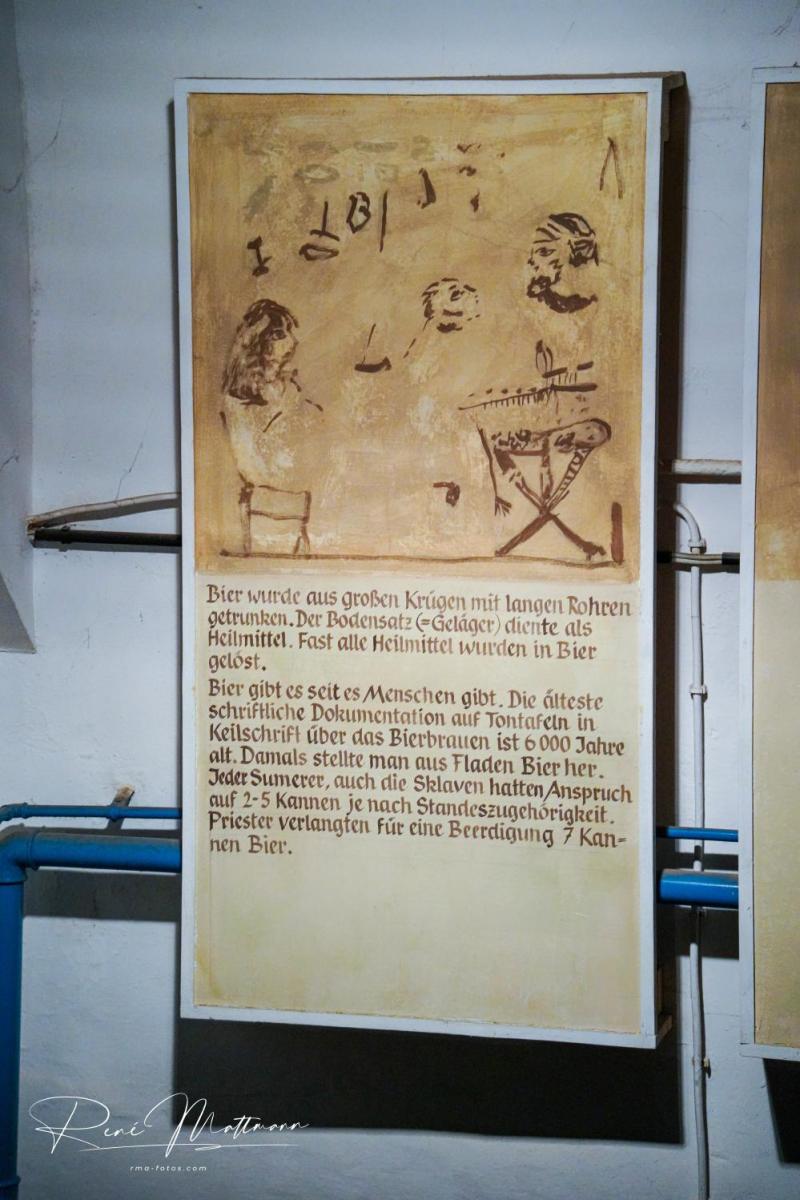 Bier wurde aus großen Krügen mit langen Rohren
getrunken. Der Bodensatz (=Geläger) diente als
Heilmittel. Fast alle Heilmittel wurden in Bier
gelöst.
Bier gibt es seit es Menschen gibt. Die älteste
schriftliche Dokumentation auf Tontafeln in
Keilschrift über das Bierbrauen ist 6000 Jahre
alt. Damals stellte man aus Fladen Bier her.
Jeder Sumerer, auch die Sklaven hatten Anspruch
auf 2-5 Kannen je nach Standeszugehörigkeit.
Priester verlangten für eine Beerdigung 7 Kan=
nen Bier.
René Mattmann
rma-fotos.com